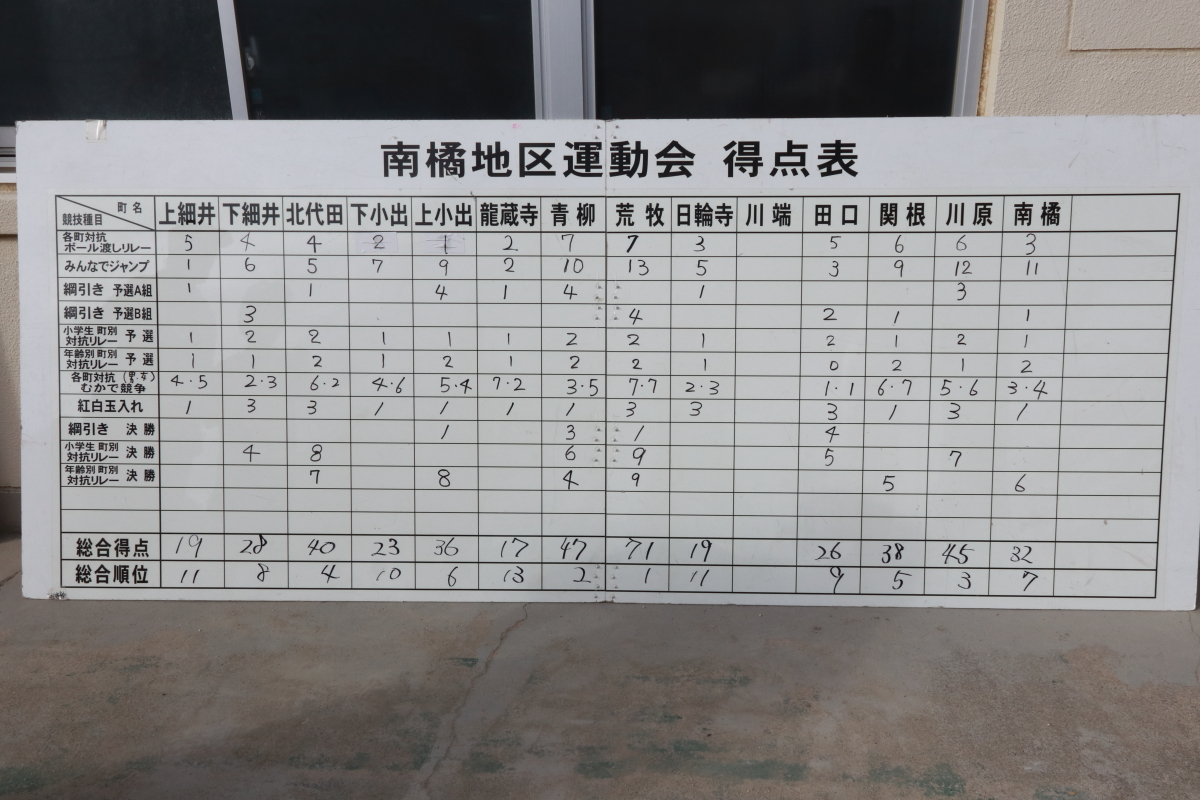 南橘地区運動会 得点表
競技種目 町名 上細井 下細井 北代田 下小出 上小出 龍蔵寺 青柳 荒牧 日輪寺 川端 田口 関根 川原 南橘
各町対抗 ボール渡しリレー 5 4 4 2 1 2 7 7 3 5 6 6 3
みんなでジャンプ 1 6 5 7 9 2 10 13 5 3 9 12 11
綱引き 予選A組 1 1 4 1 4 1 3
綱引き 予選B組 3 4 2 1 1
小学生 町別 対抗リレー 予選 1 2 2 1 1 1 2 2 1 2 1 2 1
年齢別 町別 対抗リレー 予選 1 1 2 1 2 1 2 2 1 0 2 1 2
各町対抗(男・女) むかで競争 4・5 2・3 6・2 4・6 5・4 7・2 3・5 7・7 2・3 1・1 6・7 5・6 3・4
紅白玉入れ 1 3 3 1 1 1 1 3 3 3 1 3 1
綱引き 決勝 1 3 1 4
小学生 町別 対抗リレー 決勝 4 8 6 9 5 7
年齢別 町別 対抗リレー 決勝 7 8 4 9 5 6
総合得点 19 28 40 23 36 17 47 71 19 26 38 45 32
総合順位 11 8 4 10 6 13 2 1 11 9 5 3 7